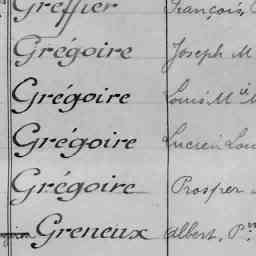 Greffier François
Grégoire Joseph M
Grégoire Louis M
Grégoire Lucien Lou
Grégoire Prosper
Greneux Albert, P